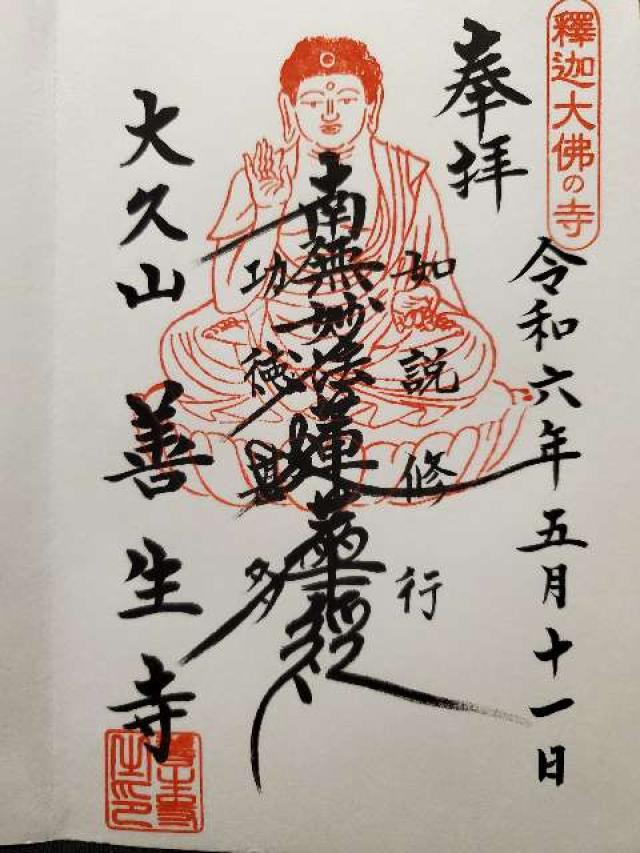 釋迦大佛の寺
奉拝
令和六年五月十一日
如説修行
南無妙法蓮華経
功徳甚多
大久山 善生寺